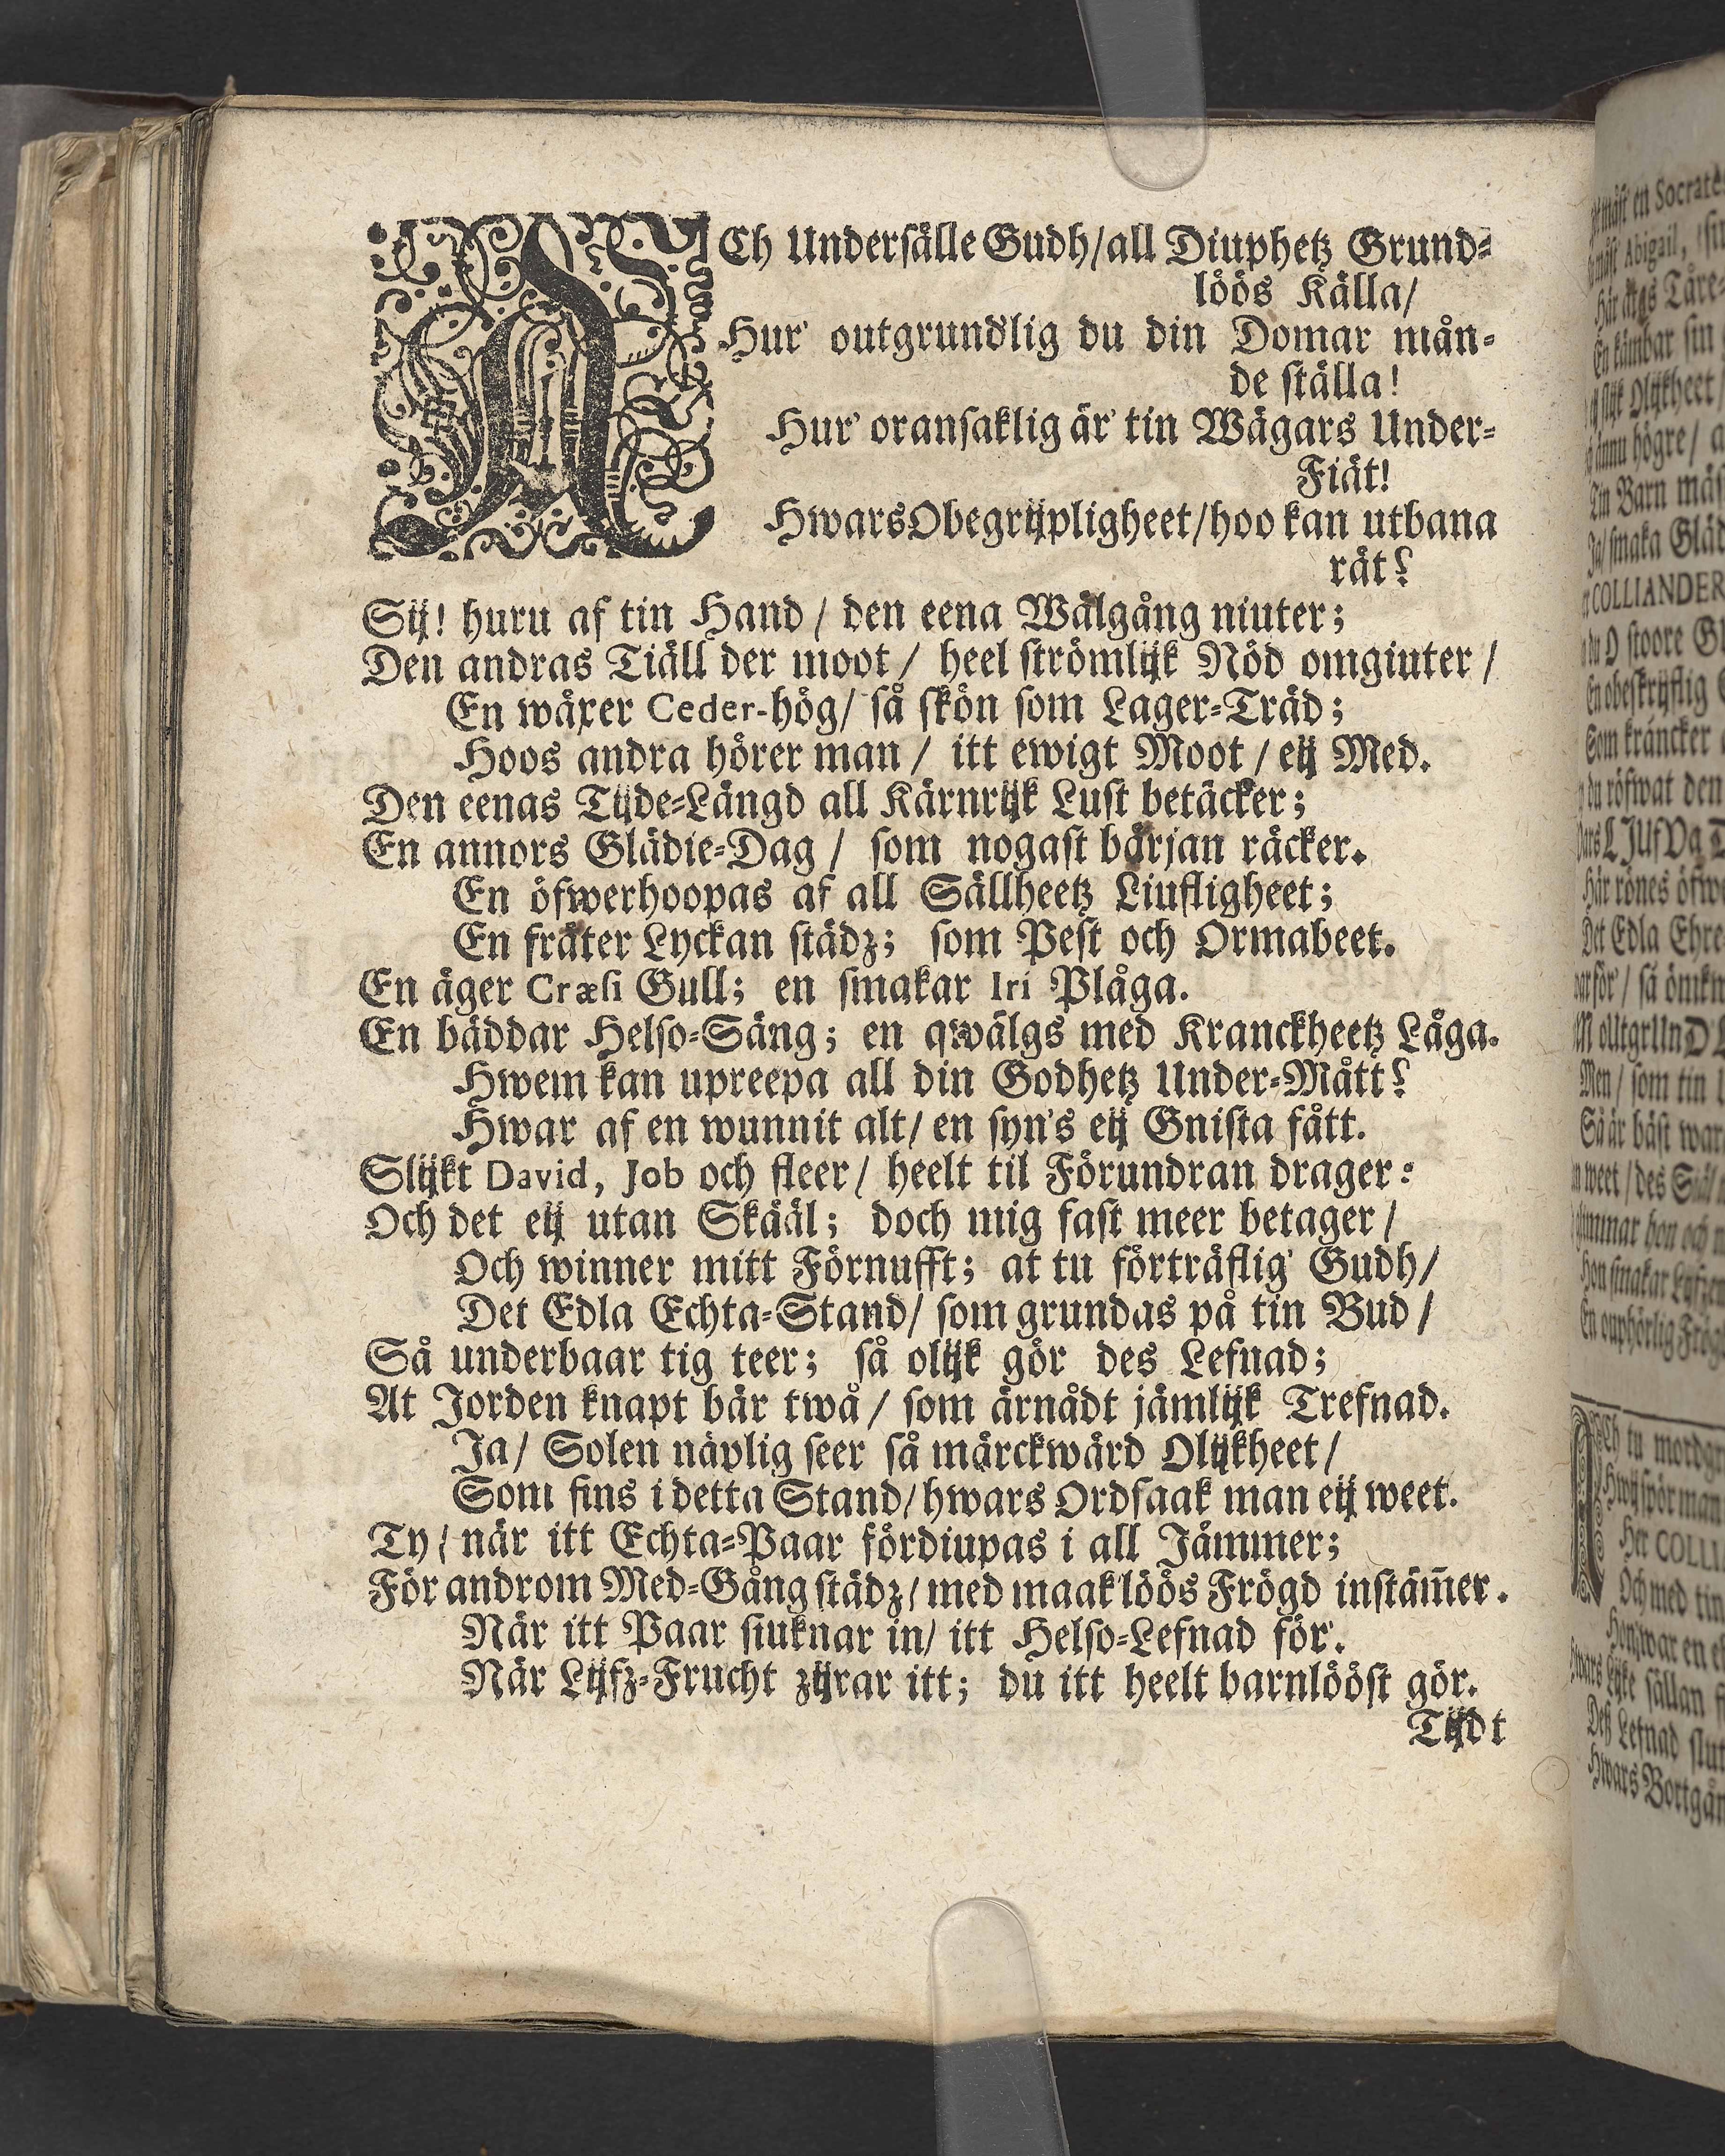 ACh Undersälle Gudh/all Diuphetz Grund-
löös Källa/
Hur' outgrundlig du din Domar mån-
de ställa!
Hur' oransaklig är' tin Wägars Under-
Fiät!
Hwars Obegrijpligheet/hoo kan utbana
rät?
Sij! huru af tin Hand / den eena Wälgång niuter;
Den andras Tiäll der moot / heel strömlijk Nöd omgiuter /
En wäxer Ceder-hög/ så skön som Lager-Träd;
Hoos andra hörer man / itt ewigt Moot / eij Med.
Den eenas Tijde-Längd all Kärnrijk Lust betäcker;
En annors Glädie-Dag / som nogast början räcker.
En öfwerhoopas af all Sällheetz Liufligheet;
En fräter Lyckan städz; som Pest och Ormabeet.
En äger Cræsi Gull; en smakar Iri Plåga.
En bäddar Helso-Säng; en qwälgs med Kranckheetz Låga.
Hwem kan upreepa all din Godhetz Under-Mått?
Hwar af en wunnit alt/ en syn's eij Gnista fått.
Slijkt David, Job och fleer / heelt til Förundran drager:
Och det eij utan Skääl; doch mig fast meer betager /
Och winner mitt Förnufft; at tu förträflig' Gudh/
Det Edla Echta-Stand/ som grundas på tin Bud /
Så underbaar tig teer; så olijk gör des Lefnad;
At Jorden knapt bär twå / som ärnådt jämlijk Trefnad.
Ja/ Solen näplig seer så märckwärd Olijkheet/
Som fins i detta Stand/hwars Ordsaak man eij weet.
Ty / när itt Echta-Paar fördiupas i all Jämmer;
För androm Med-Gång städz/ med maak'löös Frögd instäm̃er.
När itt Paar siuknar in/ itt Helso-Lefnad för'.
När Lijfz-Frucht zijrar itt; du itt heelt barnlööst gör.
Tijdt